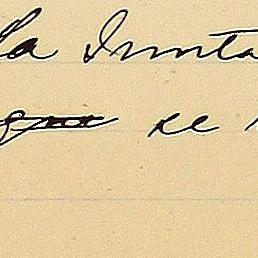 la Junta
se